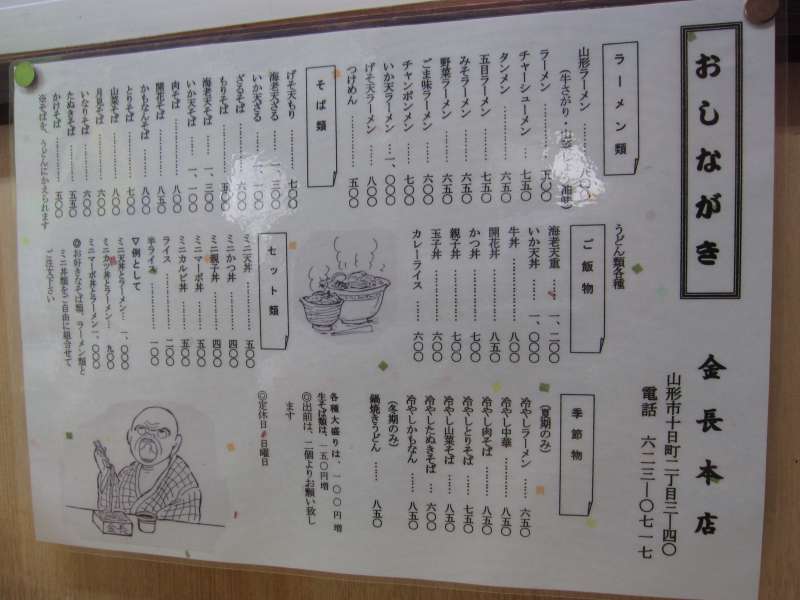 おしながき
金長本店
山形市十日町二丁目三ー四〇
電話 六二三ー〇七一七
ラーメン類
山形ラーメン………八〇〇
(牛さがり・山菜
ラーメン…………五〇〇
チャーシューメン……七五〇
タンメン…………六五〇
五目ラーメン………七五〇
みそラーメン………六五〇
野菜ラーメン………六五〇
ごま味ラーメン………六〇〇
チャンポンメン………七〇〇
いか天ラーメン…一、〇〇〇
げそ天ラーメン………八〇〇
つけめん…………五〇〇
そば類
げそ天もり…………七〇〇
海老天ざる………一、三〇〇
いか天ざる………一、一〇〇
ざるそば…………六〇〇
もりそば…………五〇〇
海老天そば………一、三〇〇
いか天そば………一、一〇〇
肉そば…………八〇〇
開花そば…………八〇〇
かもなんそば………八〇〇
とりそば…………六〇〇
山菜そば…………八〇〇
月見そば…………六〇〇
いなりそば…………六〇〇
たぬきそば…………五五〇
かけそば…………五〇〇
※そばを、うどんにかえられます
うどん類各種
ご飯物
海老天重……一、二〇〇
いか天丼……一、〇〇〇
牛丼…………八〇〇
開花丼…………八五〇
かつ丼…………七〇〇
親子丼…………七〇〇
玉子丼…………六〇〇
カレーライス……六〇〇
セット類
ミニ天丼…………五〇〇
ミニかつ丼………四〇〇
ミニ親子丼………四〇〇
ミニマーボ丼……五〇〇
ミニカルビ丼……五〇〇
ライス…………二〇〇
半ライス…………一〇〇
▽例として
ミニ天丼とラーメン…一、〇〇〇
ミニカツ丼とラーメン…九〇〇
ミニマーボ丼とラーメン一、〇〇〇
◎お好きなそば類、ラーメン類と
ミニ丼類をご自由に組合せて
ご注文下さい
季節物
(夏期のみ)
冷やしラーメン……六五〇
冷やし中華………八五〇
冷やし肉そば……八五〇
冷やしとりそば……七五〇
冷やし山菜そば……八五〇
冷やしたぬきそば…六〇〇
冷やしかもなん……八五〇
(冬期のみ)
鍋焼きうどん……八五〇
各種大盛りは、一〇〇円増
生そば類は、一五〇円増
◎出前は、二個よりお願い致し
ます
◎定休日 日曜日
金長